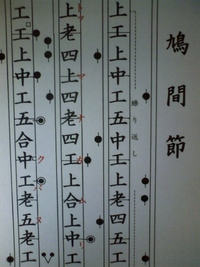 鳩間節
繰り返し
上工上中工五中工上老四五工
上老四上四老四工上合上中工
工工上中工五合中工老五老工